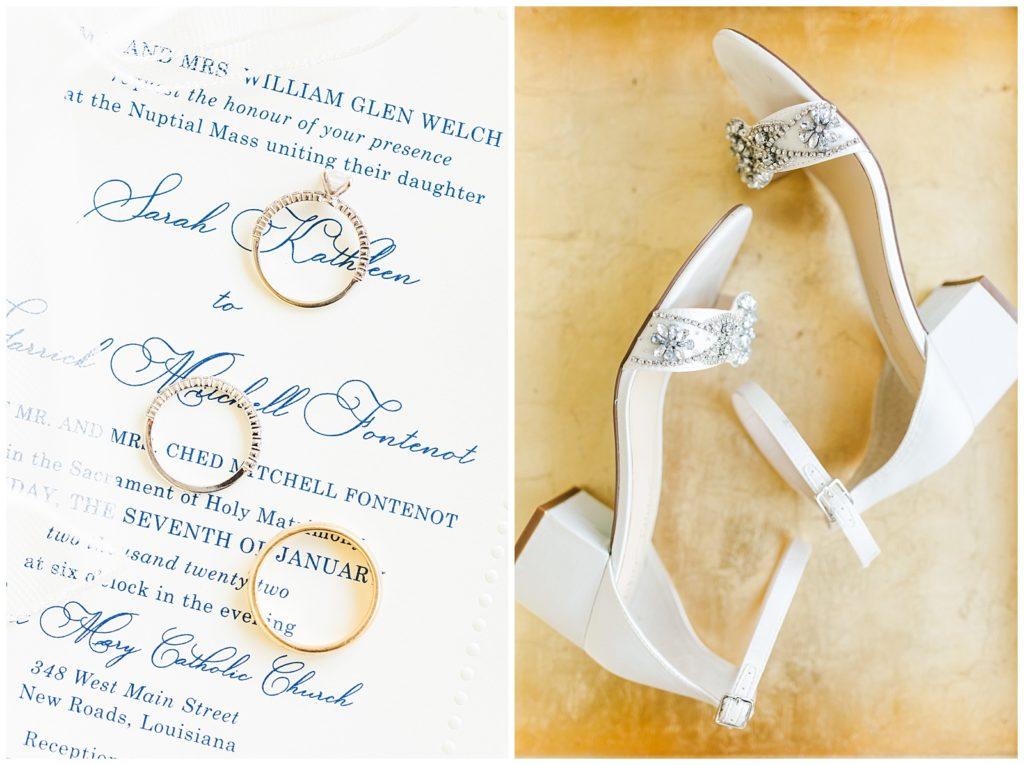 AND MRS WILLIAM GLEN WELCH
request the honour of your presence
at the Nuptial Mass uniting their daughter
Sarah Kathleen
to
Garrick Mitchell Fontenot
MR. AND MRS. CHED MITCHELL FONTENOT
in the Sacrament of Holy Matrimony
THE SEVENTH OF JANUARY
two thousand twenty two
at six o'clock in the evening
Mary Catholic Church
348 West Main Street
New Roads, Louisiana
Reception